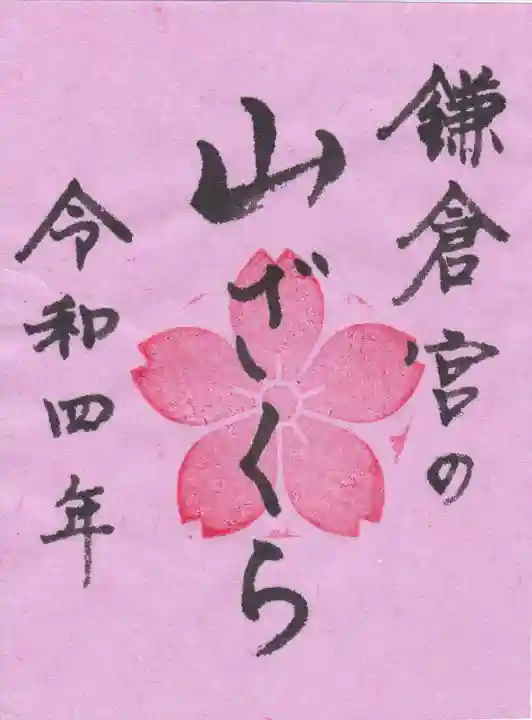 鎌倉宮の
山ざくら
令和四年